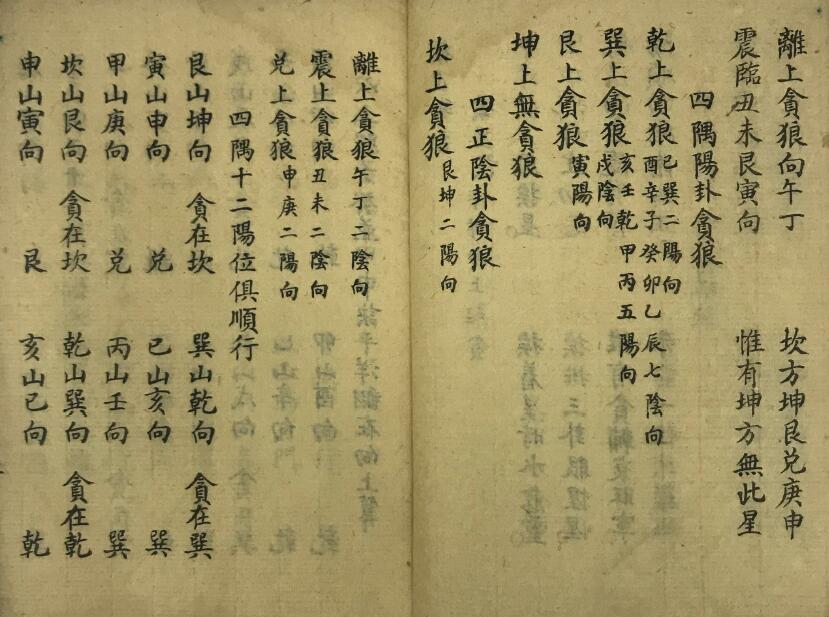 離上貪狼向午丁　坎方坤艮兌庚申
震臨丑未艮寅向　惟有坤方無此星
四隅陽卦貪狼
乾上貪狼　巳巽二陽向　酉辛子癸卯乙辰七陰向
巽上貪狼　亥壬乾甲丙五陽向　戌陰向
艮上貪狼　寅陽向
坤上無貪狼
四正陰卦貪狼
坎上貪狼　艮坤二陽向
離上貪狼午丁二陰向
震上貪狼丑未二陰向
兌上貪狼申庚二陽向
四隅十二陽位俱順行
艮山坤向　貪在坎　巽山乾向　貪在巽
寅山申向　兌　巳山亥向　巽
甲山庚向　兌　丙山壬向　巽
坎山艮向　貪在坎　乾山巽向　貪在乾
申山寅向　艮　亥山巳向　乾